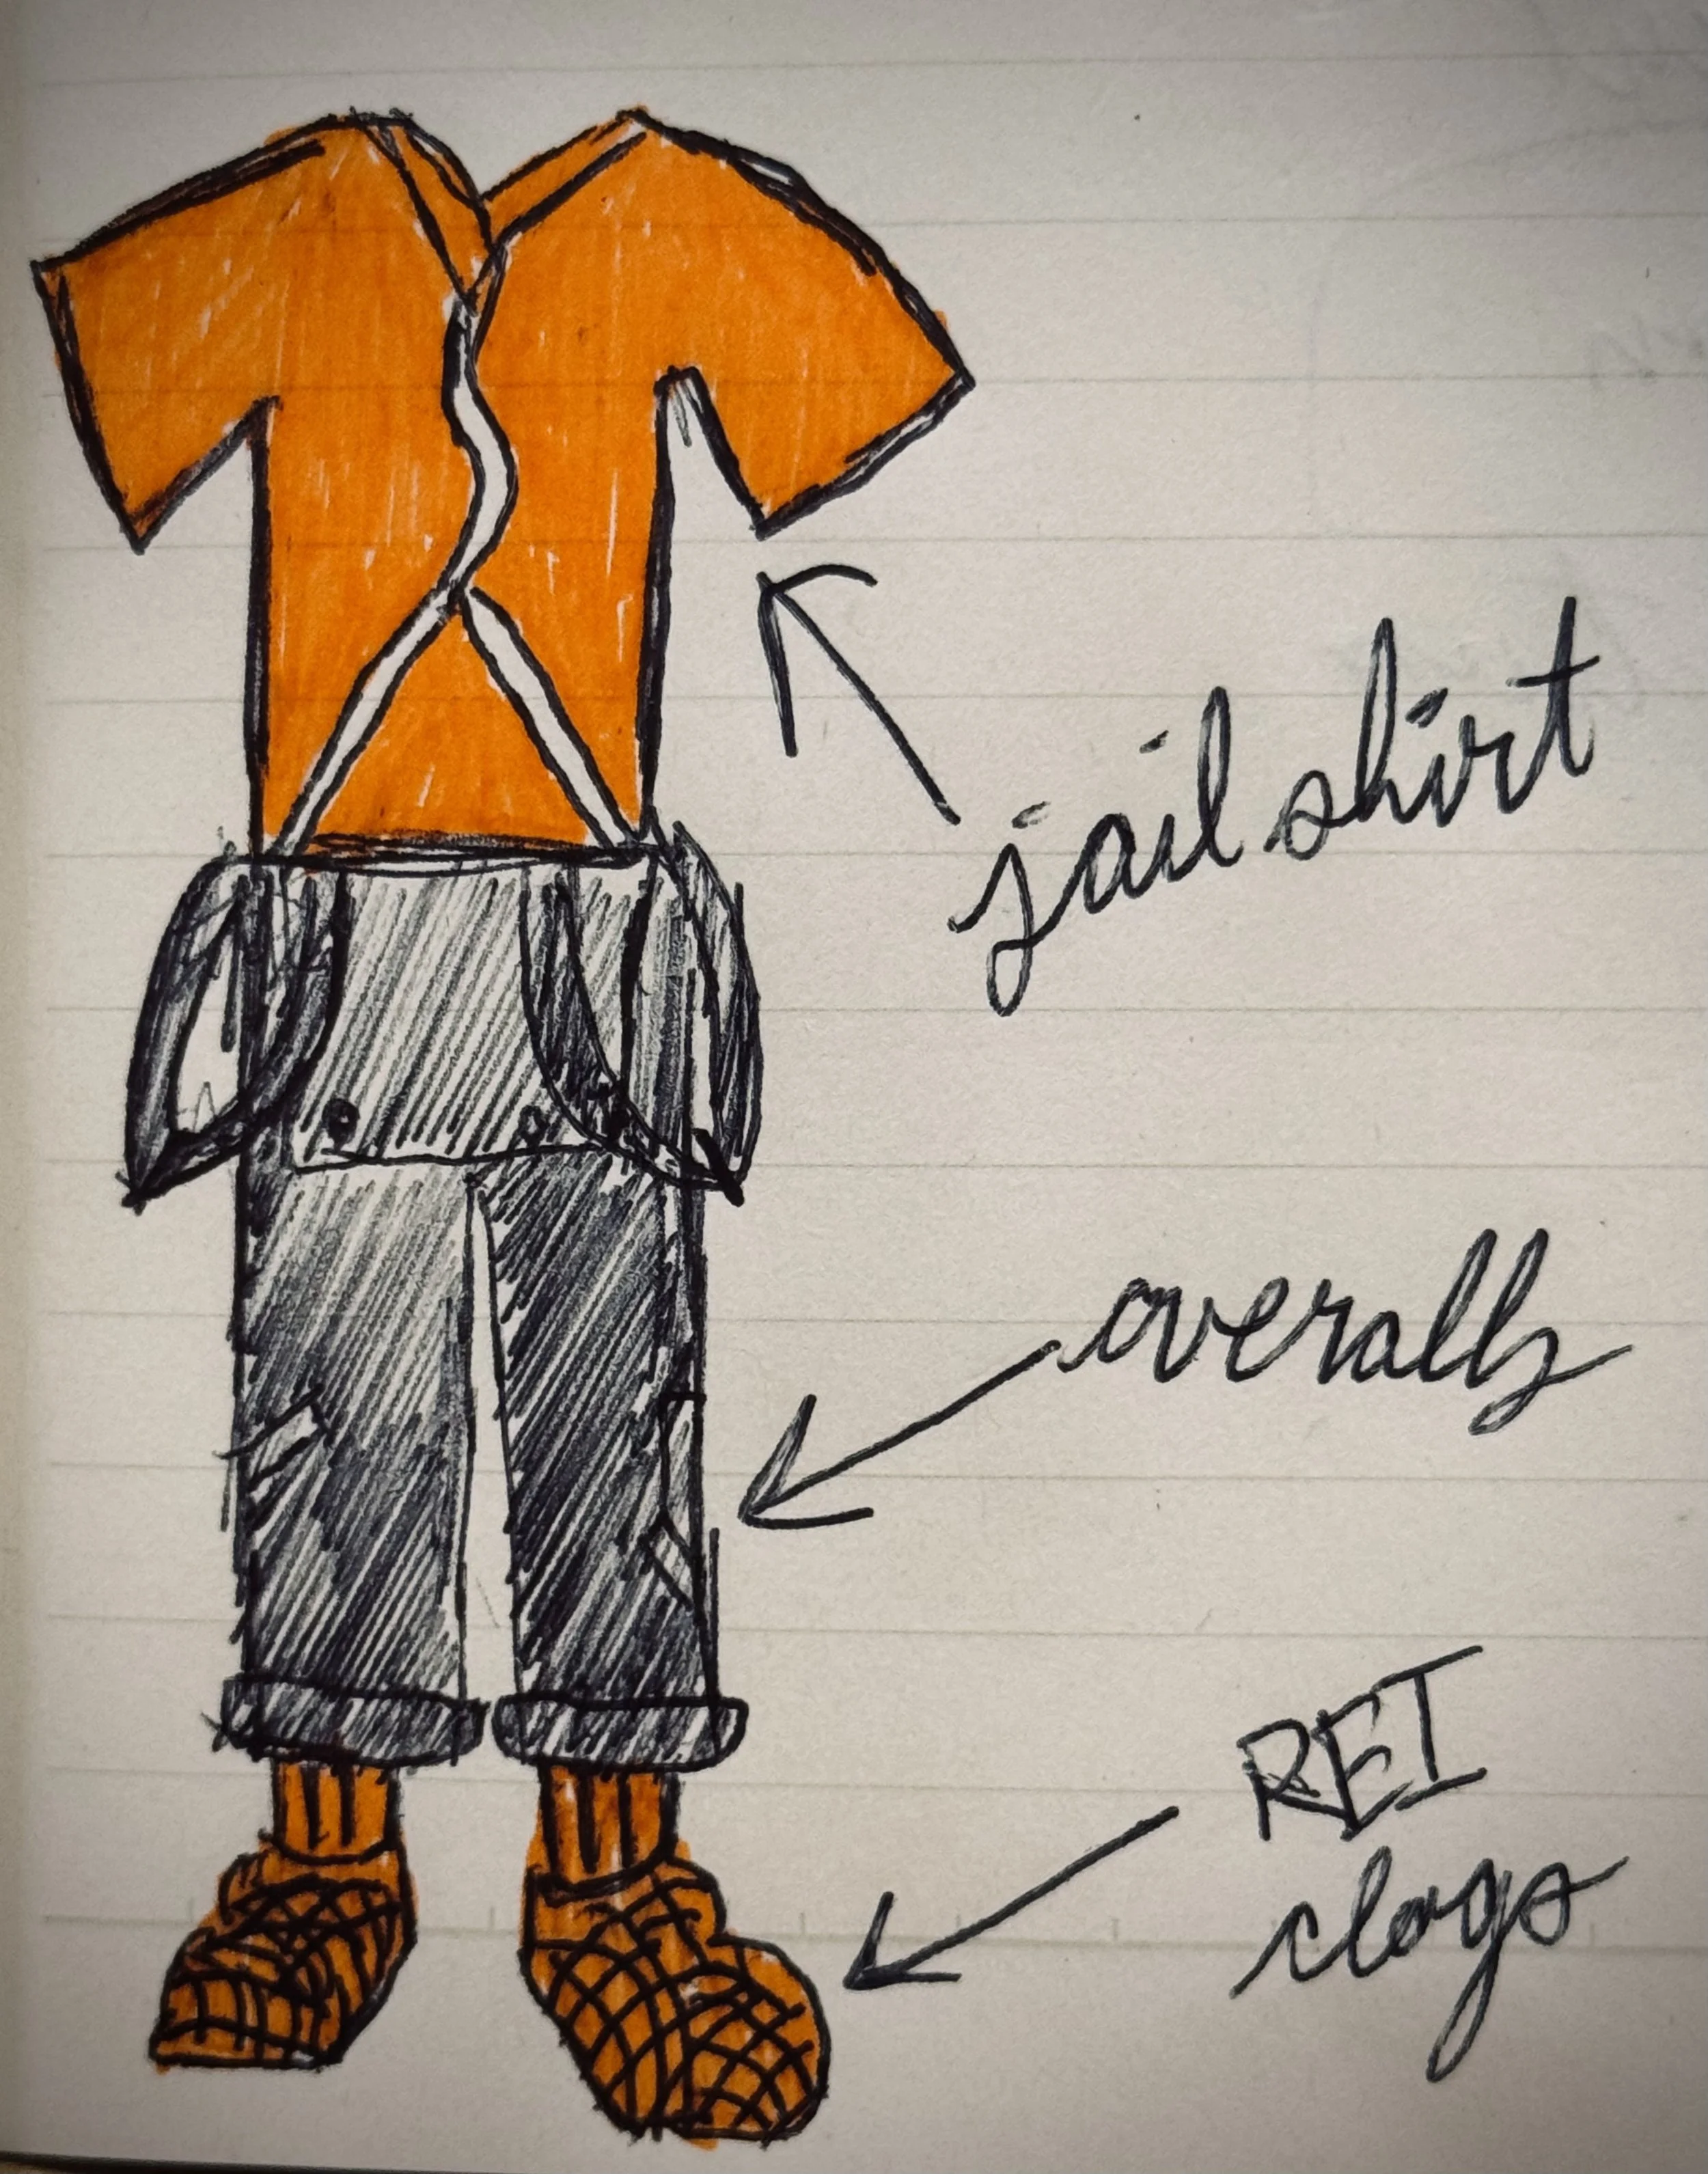 jail shirt
overalls
REI
clogs